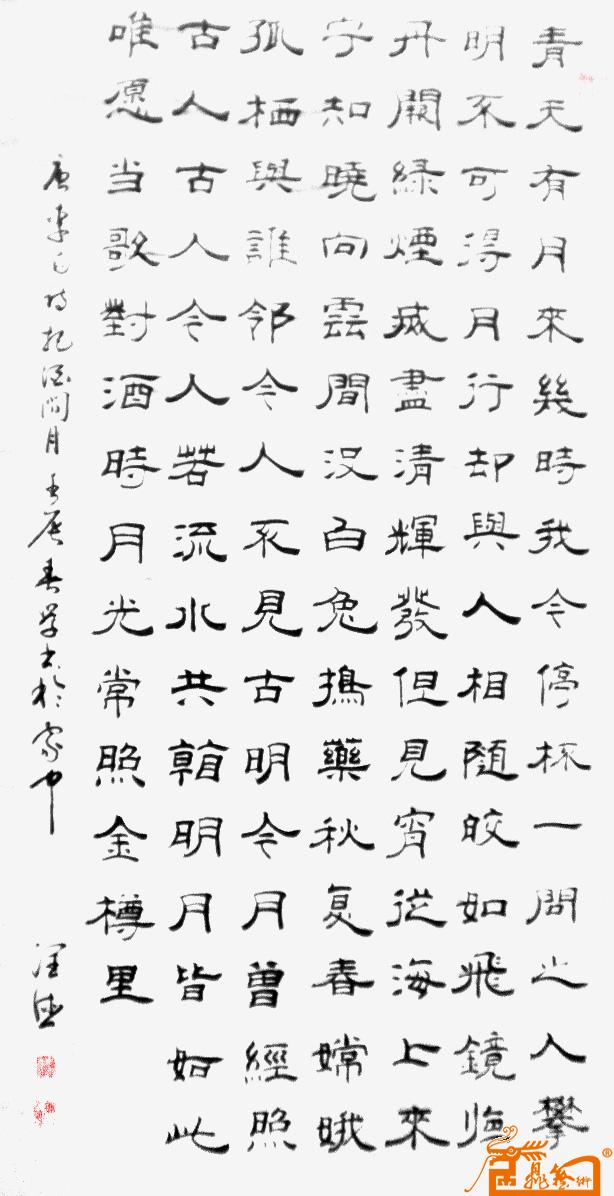 青天有月來幾時我今停杯一問之人攀
明不可得月行却與人相隨皎如飛鏡臨
丹闕綠煙滅盡清輝發但見宵從海上來
宁知曉向雲間没白兔搗藥秋复春嫦娥
孤栖與誰邻今人不見古明今月曾經照
古人古人今人若流水共看明月皆如此
唯愿当歌對酒時月光常照金樽里
唐李白诗把酒问月壬辰春学书於家中